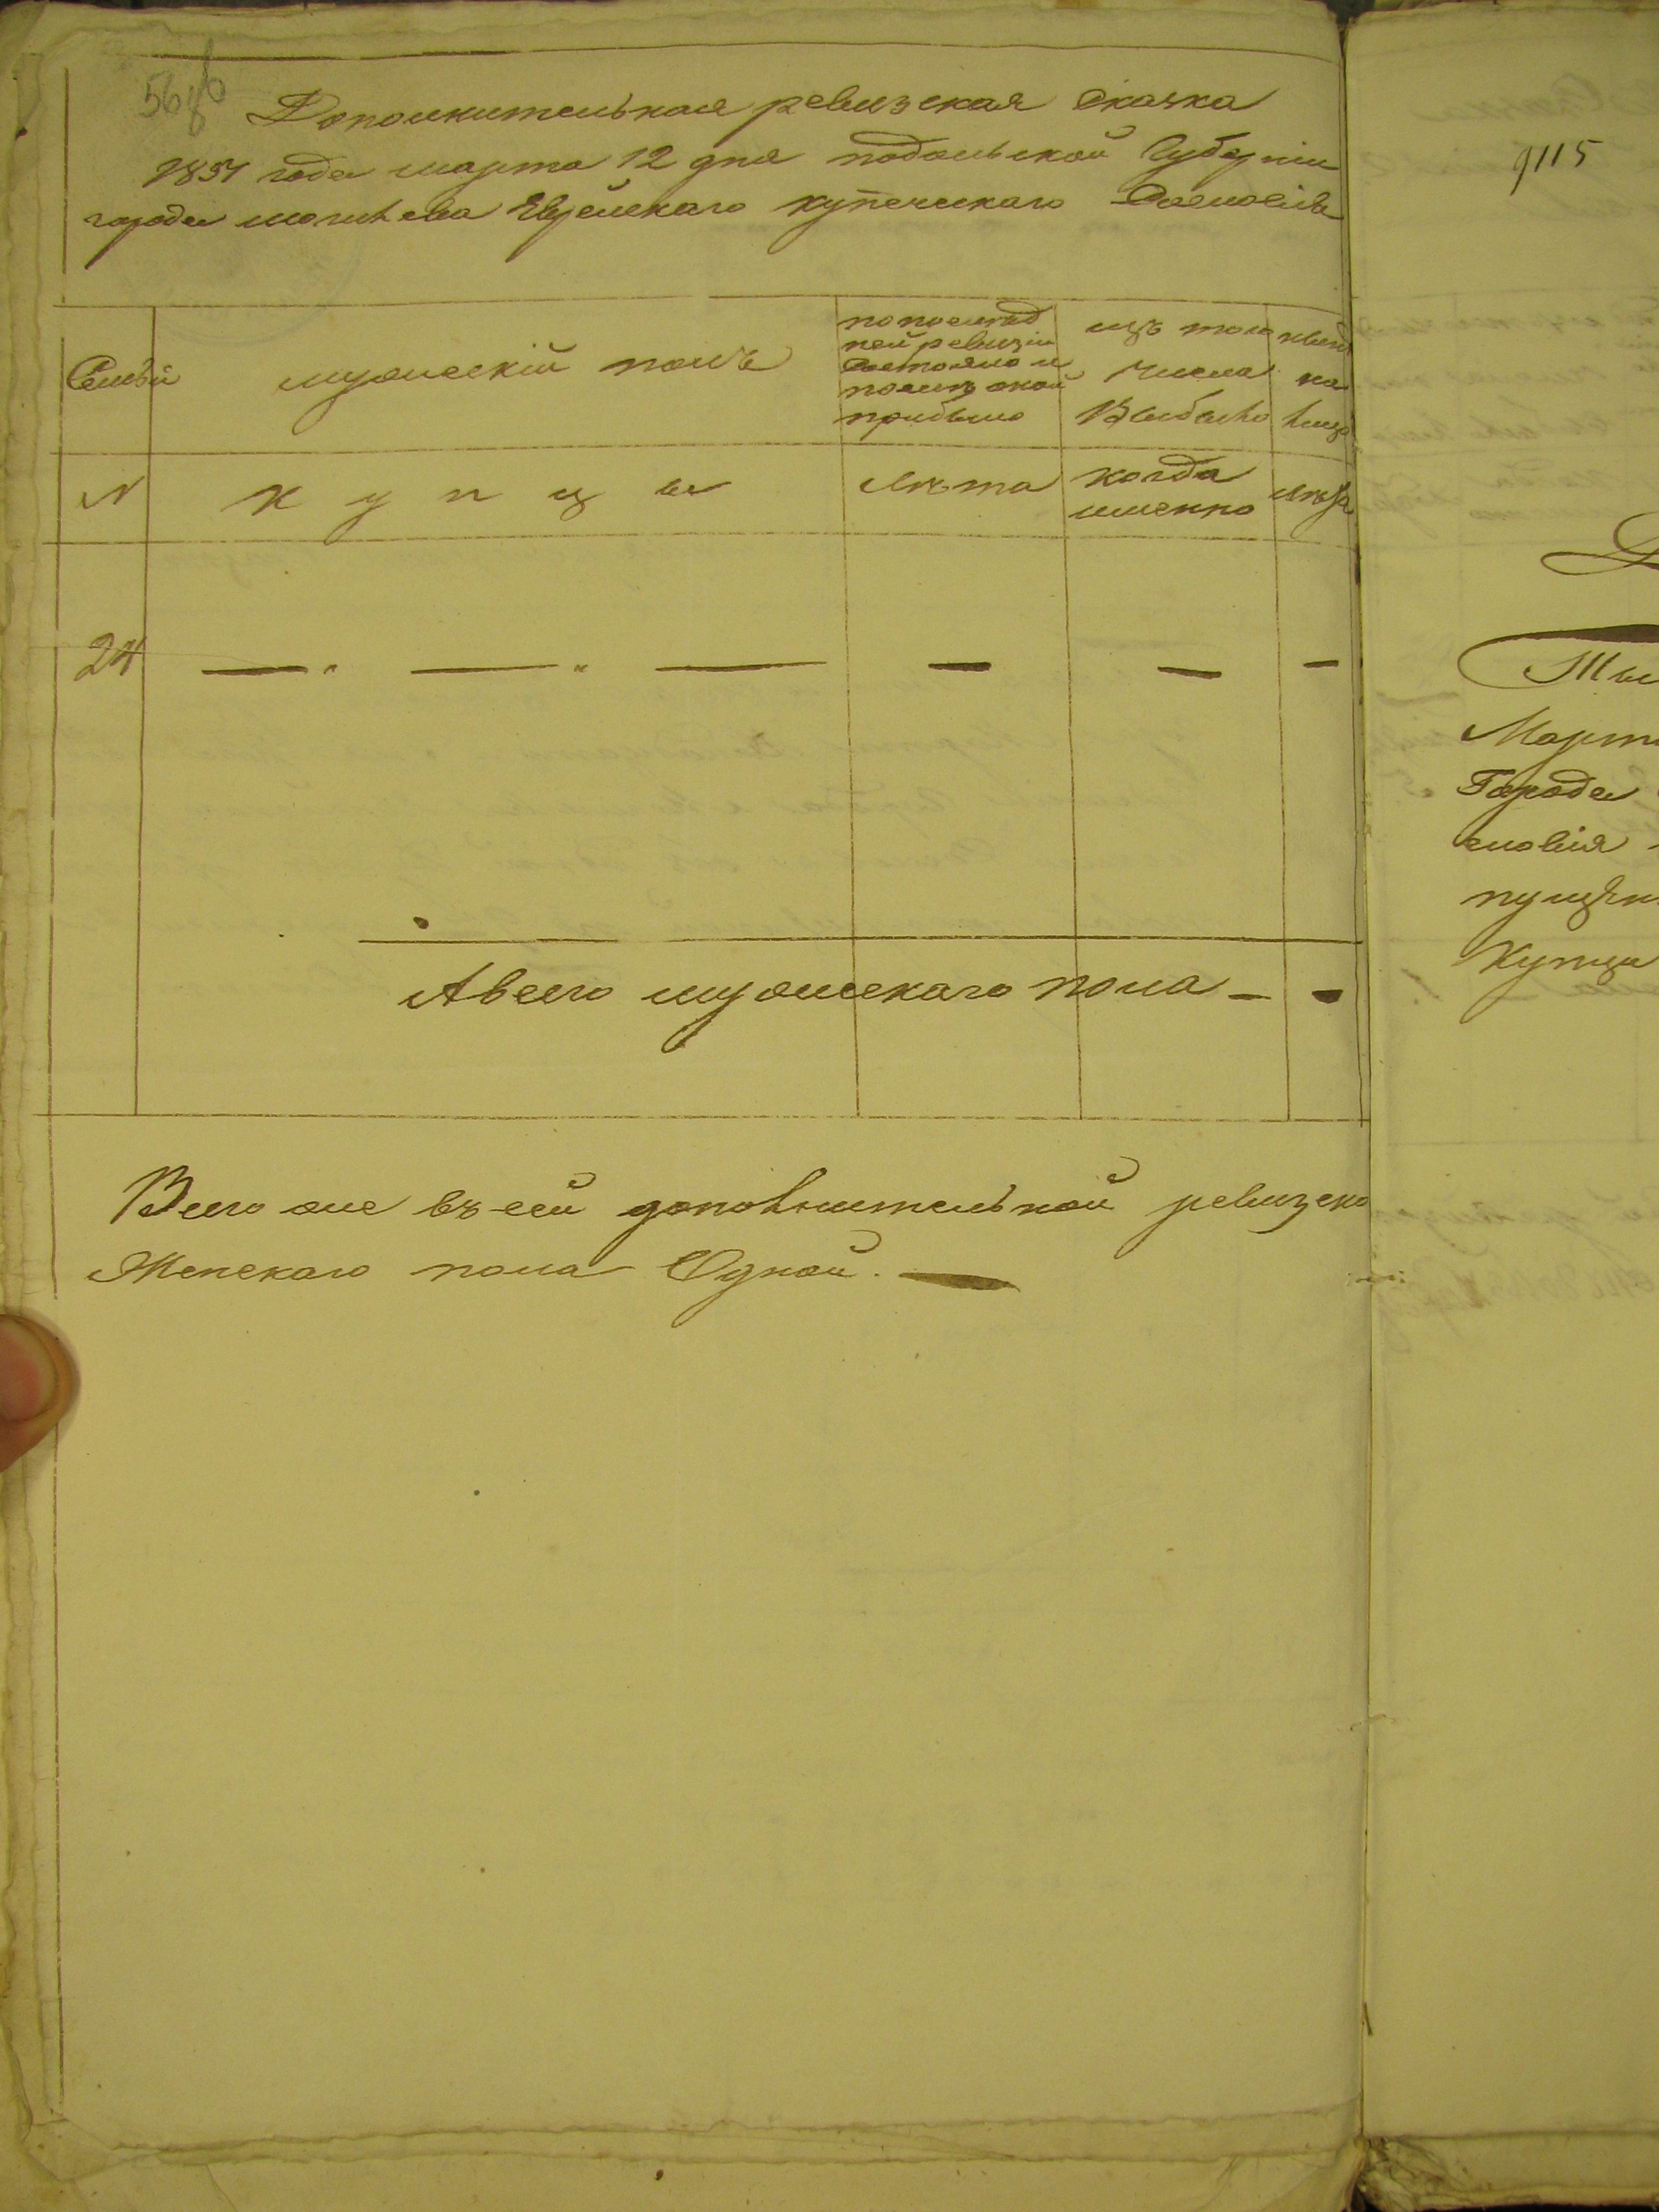 Дополнительная ревизская сказка
1851 года марта 12 дня подольской Губерніи
города могилева Еврейскаго купеческаго Сословія
Семьи
мужескій полъ
по послѣд
ней ревизіи
состояло и
послѣ оной
прибыло
изъ того
числа
Выбыло
нынѣ
на
лицо
N
к у п ц ы
Лѣта
когда
именно
лѣта
24
А всего мужескаго пола
Всего же въ сей дополнительной ревизско
Женскаго пола Одной.
9115
Марта
Города
словія
Купцы